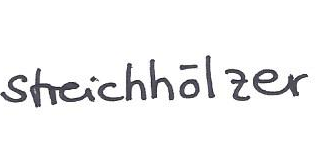 Streichhölzer